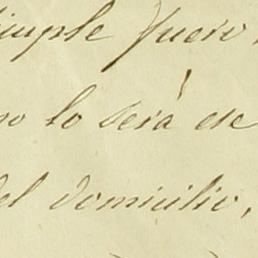 simple fuero
no lo será de
del domicilio,